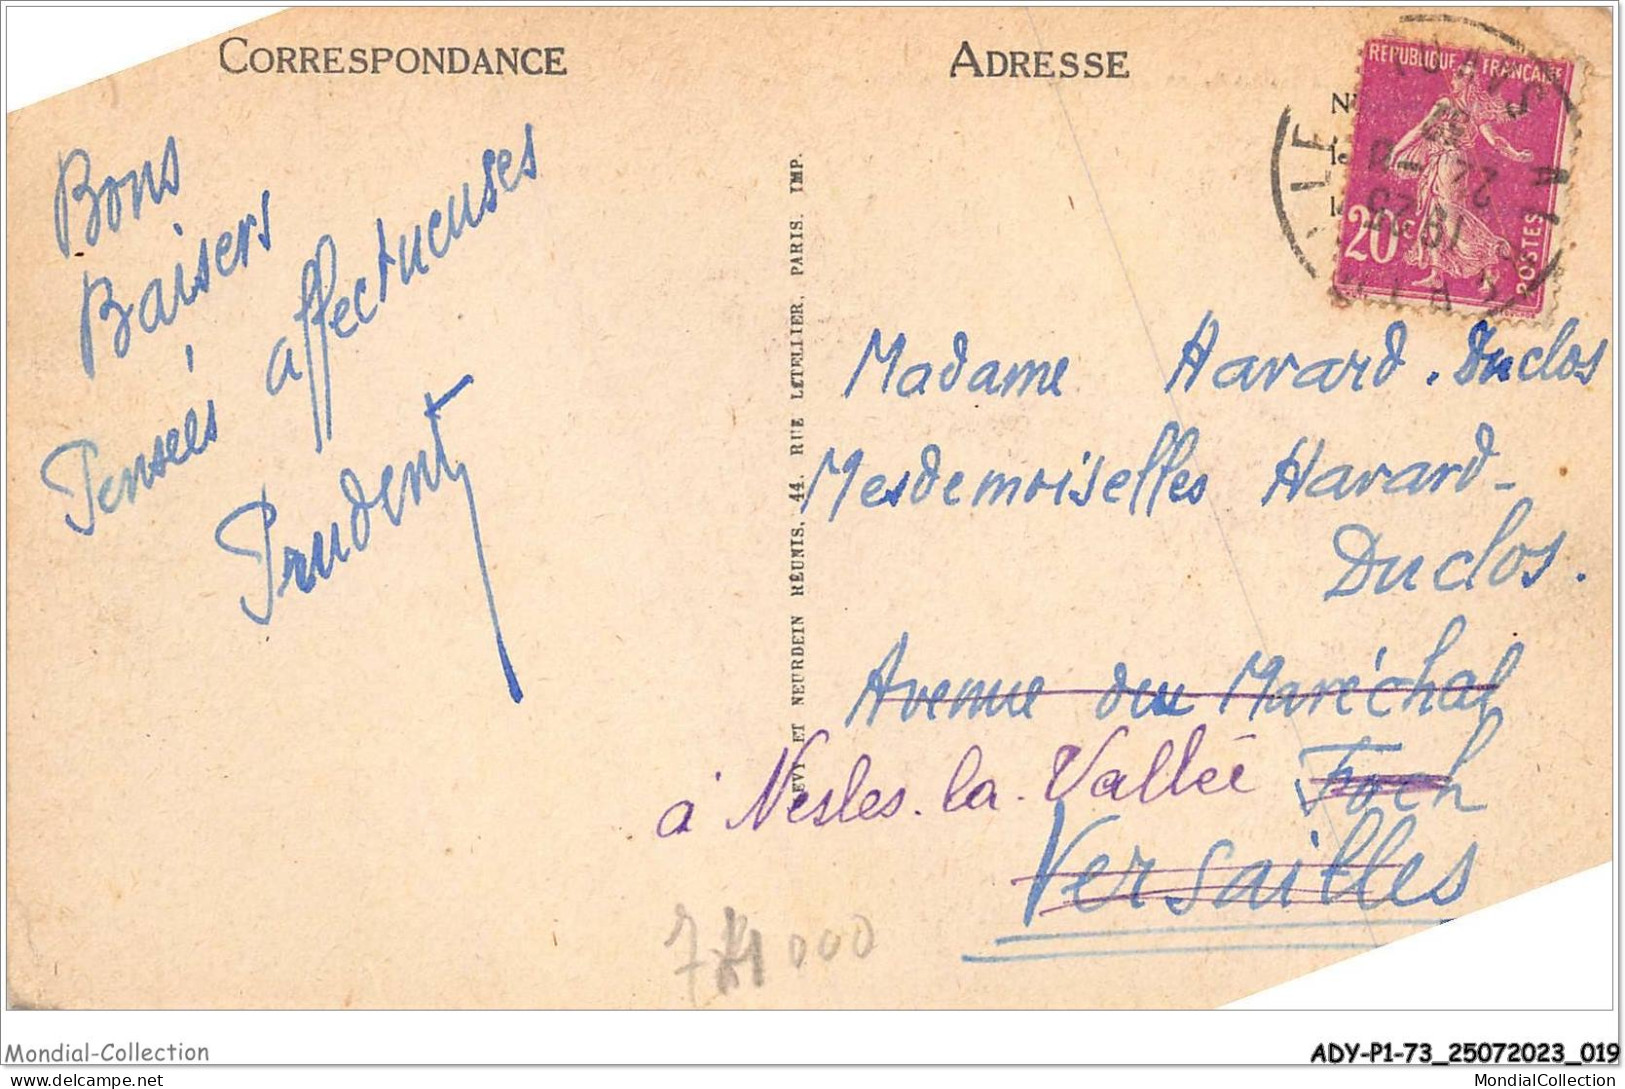 CORRESPONDANCE
ADRESSE
REPUBLIQUE FRANÇAISE
20c
POSTES
Bons
Baisers
Pensées affectueuses
Prudent
EVY ET NEURDEIN RÉUNIS, 44, RUE LETELLIER, PARIS. IMP.
Madame Havard. Duclos
Mesdemoiselles Havard-
Duclos.
Avenue du Maréchal
Foch
à Nesles-la-Vallée
Versailles
Mondial-Collection
ADY-P1-73_25072023_019
delcampe.net
MondialCollection